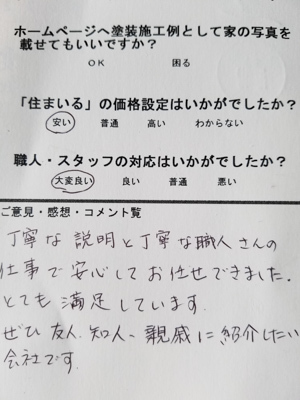 ホームページへ塗装施工例として家の写真を
載せてもいいですか？
OK 困る
「住まいる」の価格設定はいかがでしたか？
安い 普通 高い わからない
職人・スタッフの対応はいかがでしたか？
大変良い 良い 普通 悪い
ご意見・感想・コメント覧
丁寧な説明と丁寧な職人さんの
仕事で安心してお任せできました。
とても満足しています。
ぜひ友人、知人、親戚に紹介したい
会社です。